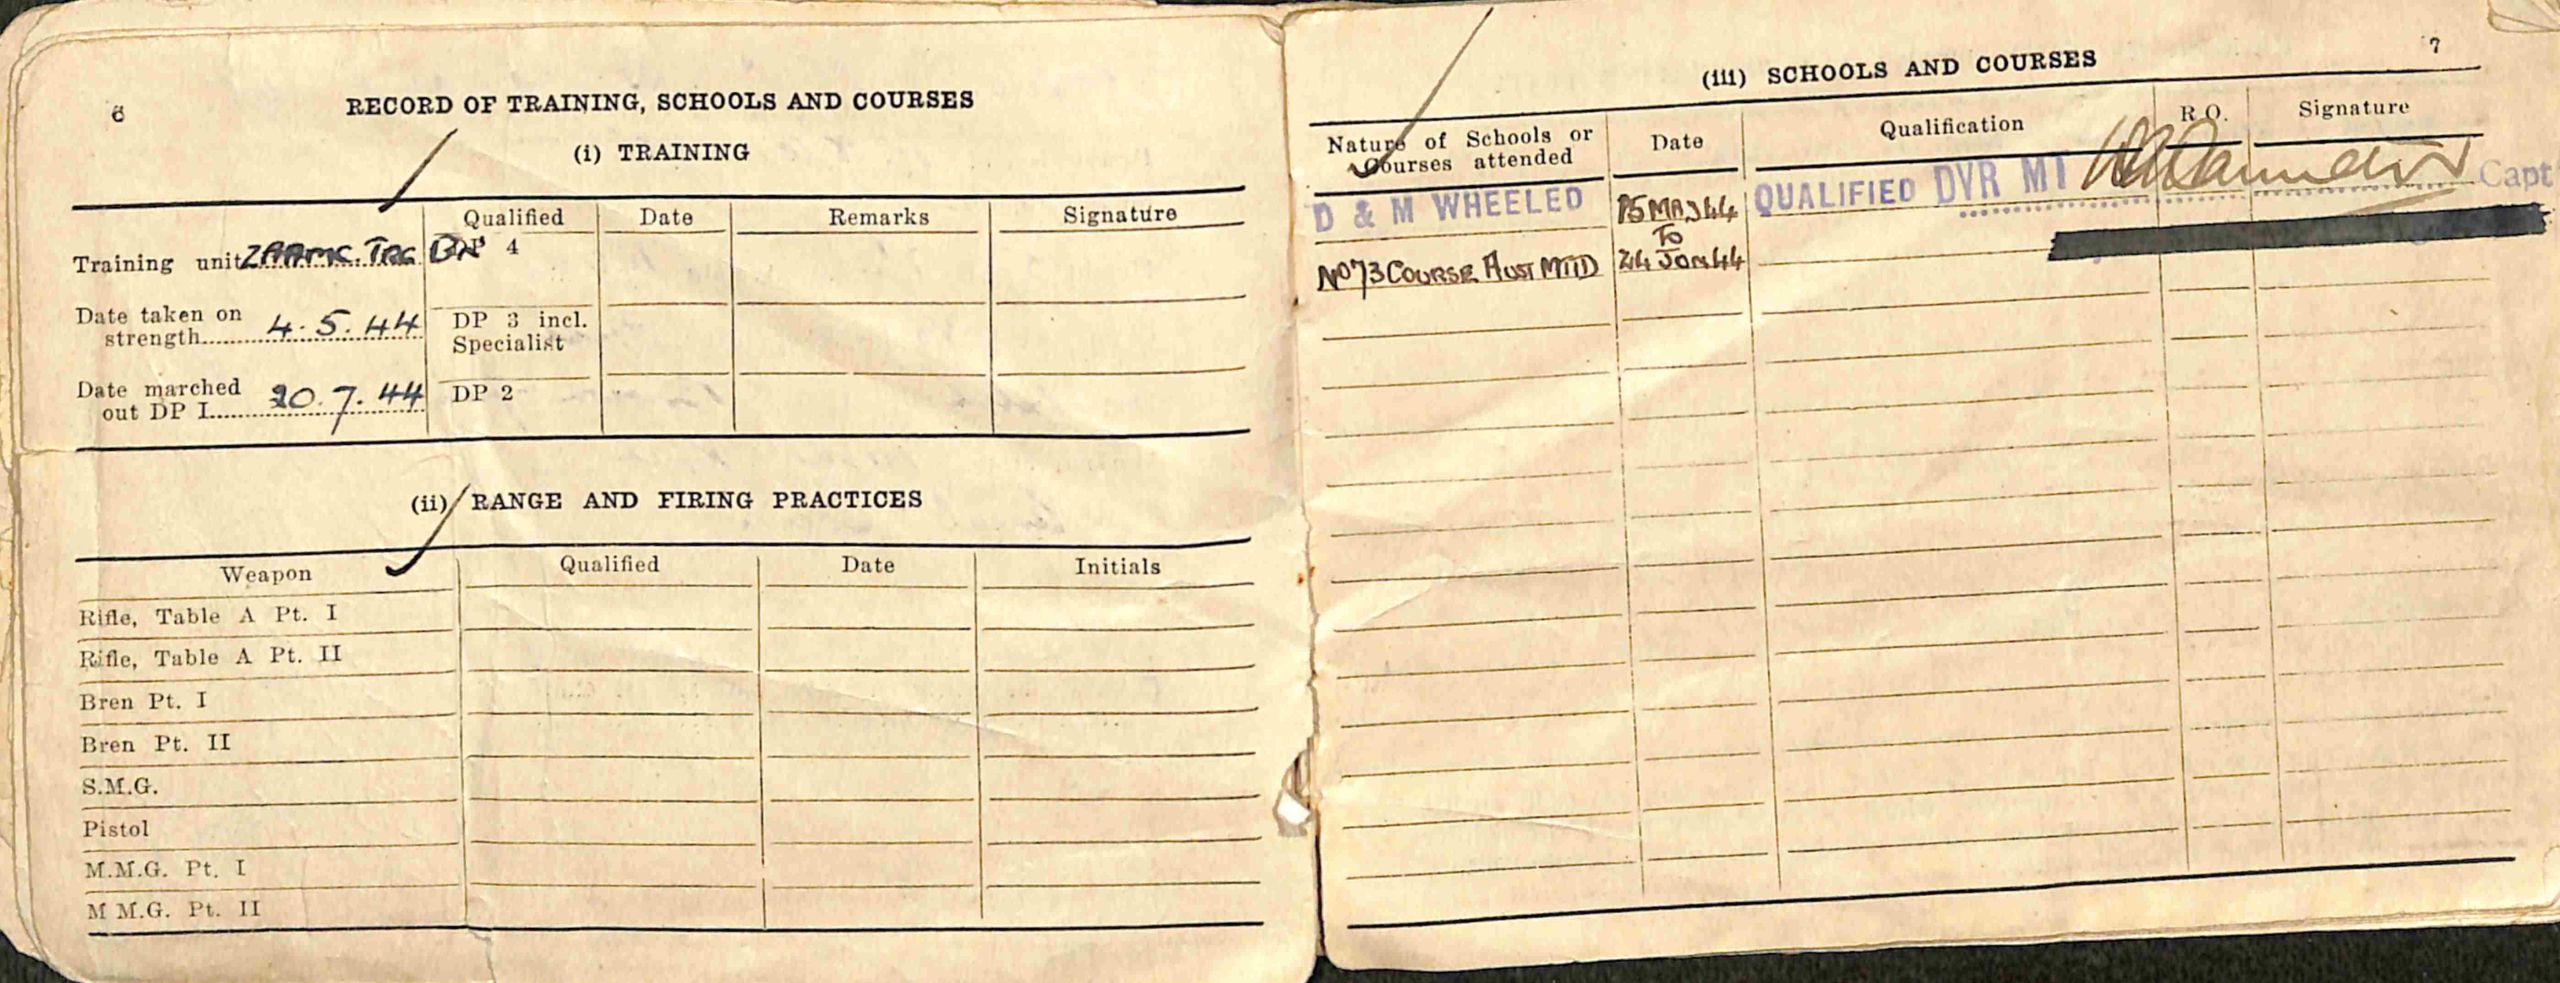 6
RECORD OF TRAINING, SCHOOLS AND COURSES
(i) TRAINING
Qualified Date Remarks Signature
Training unit 2AAMC. TRG BN DP 4
Date taken on
strength 4.5.44 DP 3 incl.
Specialist
Date marched
out DP I 20.7.44 DP 2
(ii) RANGE AND FIRING PRACTICES
Weapon Qualified Date Initials
Rifle, Table A Pt. I
Rifle, Table A Pt. II
Bren Pt. I
Bren Pt. II
S.M.G.
Pistol
M.M.G. Pt. I
M M.G. Pt. II
7
(iii) SCHOOLS AND COURSES
Nature of Schools or
Courses attended Date Qualification R.O. Signature
D & M WHEELED 15 MAY 44 QUALIFIED DVR MT Capt
To
No 73 COURSE AUST MTTD 24 JUN 44